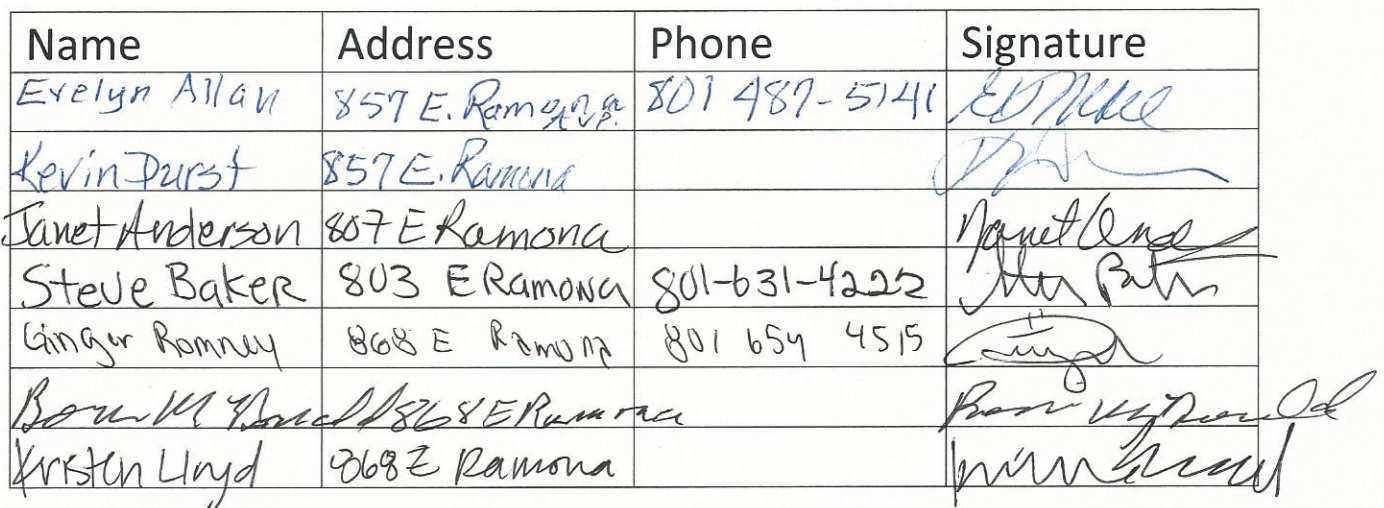 Name Address Phone Signature
Evelyn Allan 857 E. Ramona Ave. 801 487-5141
Kevin Durst 857 E. Ramona
Janet Anderson 807 E Ramona Janet
Steve Baker 803 E Ramona 801-631-4222
Ginger Romney 868 E Ramona 801 654 4515
868 E Ramona
Kristen Lloyd 868 E Ramona